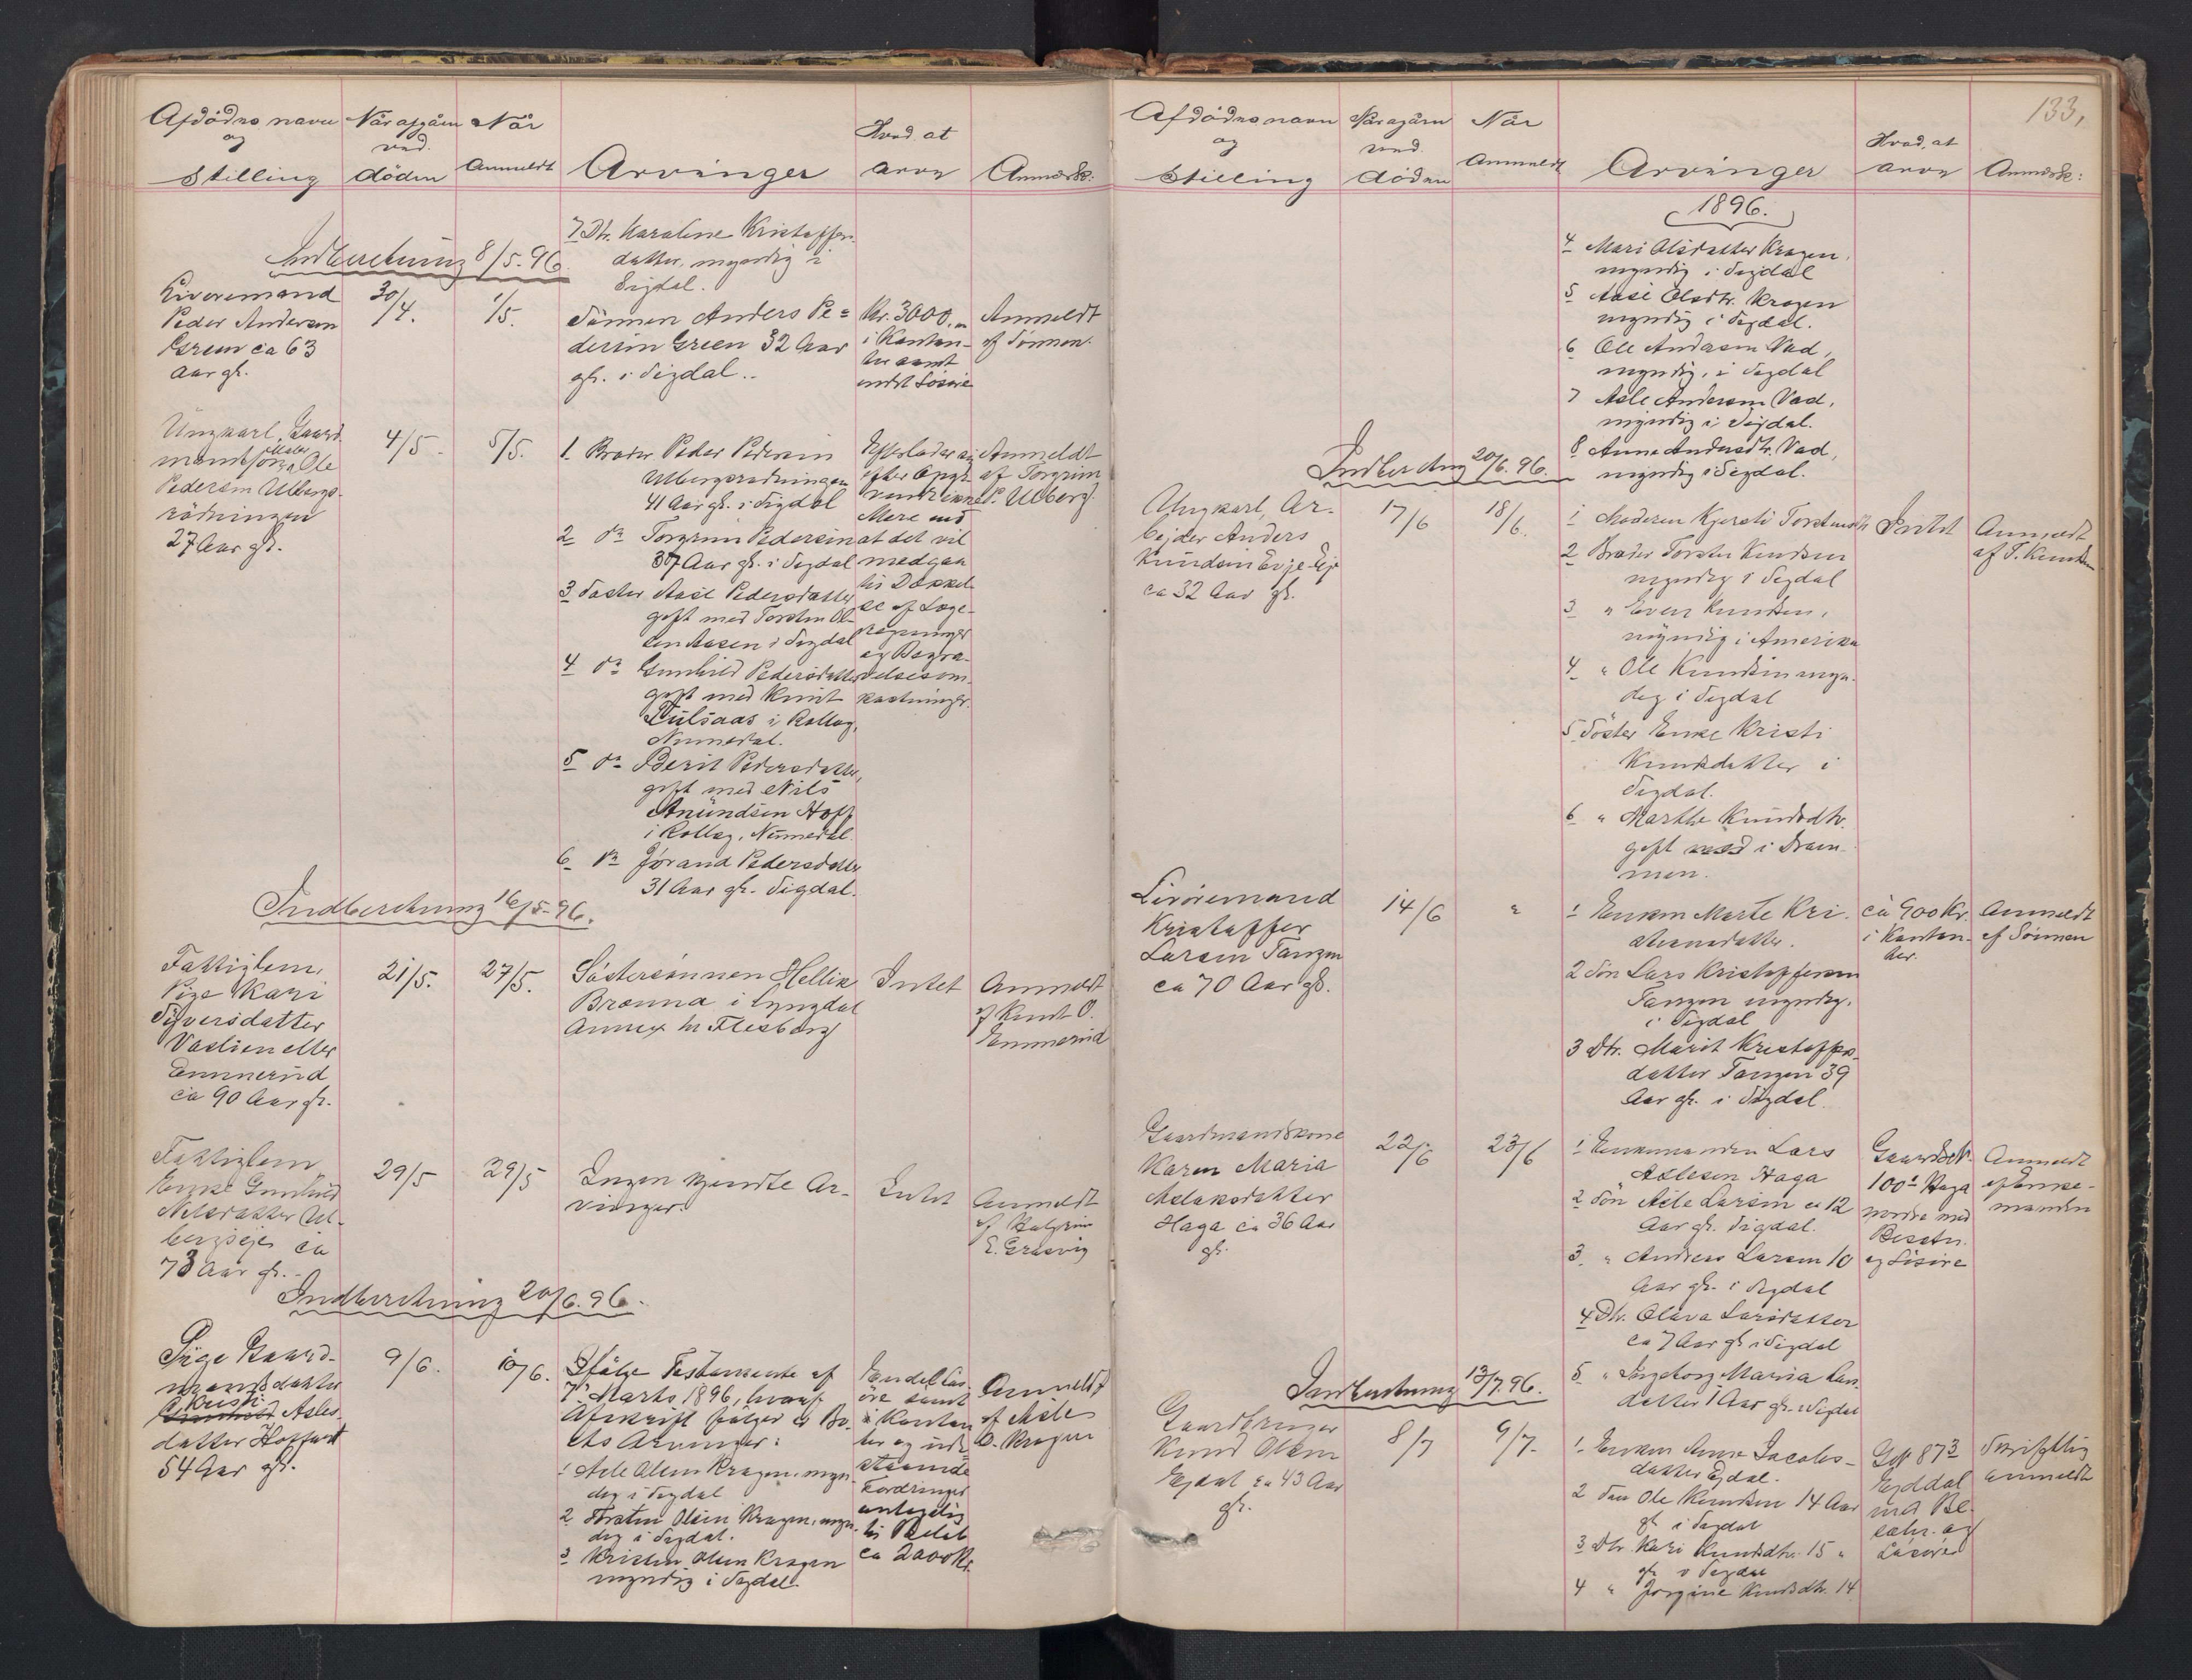 Afdødes navn
og
Stilling
Når afgåen
ved
døden
Når
Anmeldt
Arvinger
Hvad at
arve
Anmærk:
7 Dtr. Karoline Kristoffers-
datter, myndig i
Sigdal.
Indberetning 8/5-96.
Livøremand
Peder Andersen
Green ca 63
Aar gl.
30/4.
1/5.
Sønnen Anders Pe=
dersen Green 32 Aar
gl. i Sigdal.
Kr. 3000,
i Kontan-
ter samt
endel Løsøre
Anmeldt
af Sønnen.
Ungkarl, Gaard-
mandssøn Ole
Pedersen Ulbergs-
rødningen
27 Aar gl.
4/5
5/5.
1. Broder Peder Pedersen
Ulbergsrødningen
41 Aar gl. i Sigdal
2 do Torgrim Pedersen
37 Aar gl. i Sigdal
3 Søster Aase Pedersdatter
gift med Torsten Ol-
sen Aasen i Sigdal
4 do Gunhild Pedersdatter
gift med Knut
i Rollag,
Numedal.
5 do Berit Pedersdatter,
gift med Nils
Amundsen Hoff
i Rollag, Numedal.
6 do Jørand Pedersdatter
31 Aar gl. Sigdal.
Efterlader sig
efter Opgi-
vende ikke
Mere end
at det vil
medgaa
til Dække-
se af Læge-
regninger
og Begra-
velsesom-
kostninger.
Anmeldt
af Torgrim
P. Ulberg.
Indberetning 16/5-96.
Fattiglem,
Pige Kari
Syversdatter
Vaslien eller
Emmerud
ca 90 Aar gl.
21/5.
27/5.
Søstersønnen Hellik
Brænna i Lyngdal
Annex til Flesberg
Intet
Anmeldt
af Knut O.
Emmerud
Fattiglem
Enke Gunhild
Nilsdatter Ul-
bergseje ca
73 Aar gl.
29/5
29/5
Ingen kjendte Ar-
vinger.
Intet
Anmeldt
af Halgrim
E. Græsvig
Indberetning 20/6.96.
Pige Gaard-
mandsdatter
Kristi
Asles-
datter Hoffart
54 Aar gl.
9/6.
10/6.
Ifølge Testamente af
7 Marts 1896, hvoraf
Afskrift følger er Bo-
ets Arvinger:
1 Asle Olsen Kragen, myn-
dig i Sigdal
2 Torsten Olsen Kragen, myn-
dig i Sigdal.
3 Kristen Olsen Kragen
myndig i Sigdal.
Endel Løs-
øre samt
i Kontan-
ter og ude-
staaende
Fordringer
antagelig
til Beløb
ca 2000 Kr.
Anmeldt
af Asle
O. Kragen
133,
Afdødes navn
og
Stilling
Når afgåen
ved
døden
Når
Anmeldt
Arvinger
Hvad at
arve
Anmærk:
1896.
4 Mari Olsdatter Kragen,
myndig i Sigdal
5 Aase Olsdtr. Kragen
myndig i Sigdal.
6 Ole Andersen Vad,
myndig, i Sigdal
7 Asle Andersen Vad,
myndig i Sigdal.
8 Anne Andersdtr. Vad,
myndig i Sigdal.
Indberetning 20/6.96.
Ungkarl, Ar-
bejder Anders
Knudsen Evje-Eje
ca 32 Aar gl.
17/6
18/6.
1 Moderen Kjersti Torstensdtr
2 Broder Torsten Knudsen
myndig i Sigdal
3 " Even Knudsen,
myndig i Amerika
4 " Ole Knudsen myn-
dig i Sigdal
5 Søster Enke Kristi
Knudsdatter i
Sigdal.
6 " Marthe Knudsdtr.
gift med i Dram-
men.
Intet
Anmeldt
af T. Knudsen
Livøremand
Kristoffer
Larsen Tangen
ca 70 Aar gl.
14/6
"
1 Enken Marte Kri-
stiansdatter.
2 Søn Lars Kristoffersen
Tangen myndig,
i Sigdal
3 Dtr. Marit Kristoffers-
datter Tangen 39
Aar gl. i Sigdal.
ca 900 Kr.
i Kontan-
ter.
Anmeldt
af Sønnen
Gaardmandskone
Karen Maria
Aslaksdatter
Haga ca 36 Aar
gl.
22/6
23/6
1 Enkemanden Lars
Aslesen Haga
2 Søn Asle Larsen ca 12
Aar gl. Sigdal.
3 " Andreas Larsen 10
Aar gl. i Sigdal
4 Dtr. Olava Larsdatter
ca 7 Aar gl. i Sigdal
5 " Ingeborg Maria Lars-
datter 1 Aar gl. Sigdal
Gaardsbr.
100 Haga
nordre med
Besætn.
og Løsøre
Anmeldt
af Enke-
manden
Indberetning 13/7.96.
Gaardbruger
Knud Olsen
Egdal ca 43 Aar
gl.
8/7
9/7.
1. Enken Anne Jacobs-
datter Egdal.
2 Søn Ole Knudsen 14 Aar
gl i Sigdal
3 Dtr. Kari Knudsdtr. 15 "
gl i Sigdal
4 " Jorgine Knudsdtr. 14
87
med Be-
sætn. og
Løsøre
Skriftlig
anmeldt